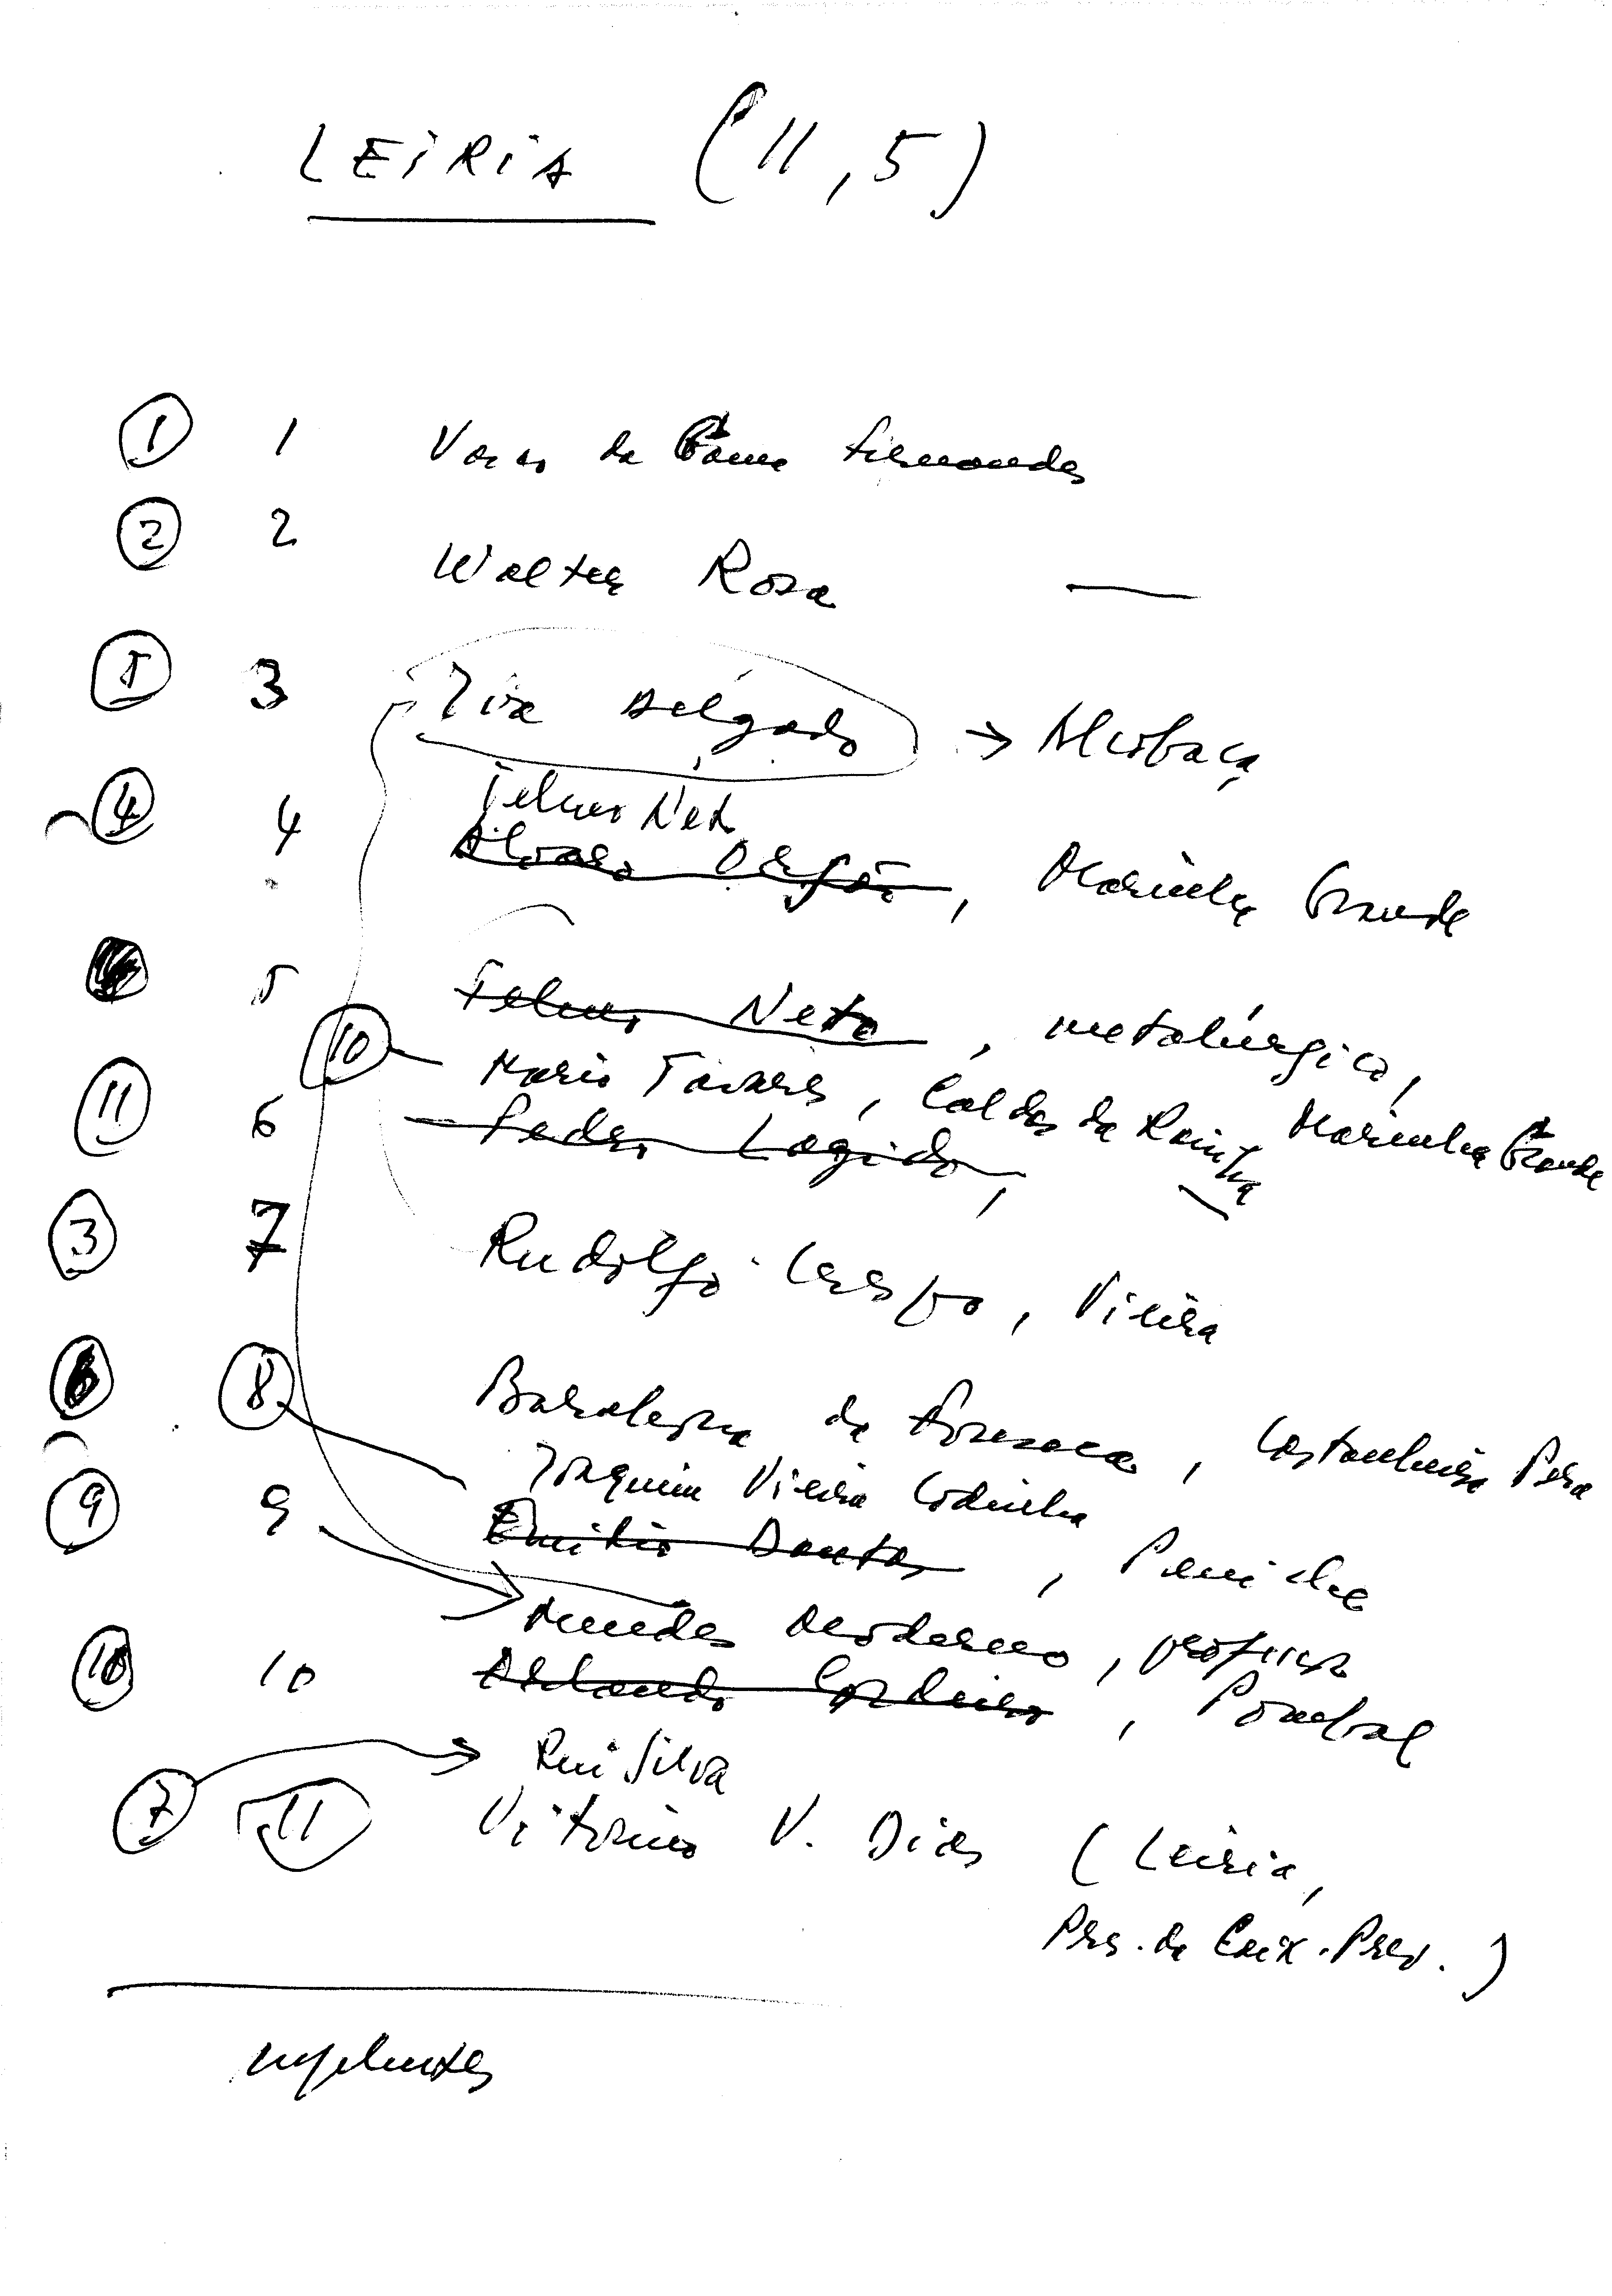 LEIRIA (11,5)
① 1 Vasco da Gama Fernandes
② 2 Walter Rosa —
⑤ 3 Delgado → Alcobaça
Telmo Neto
④ 4 Álvaro Órfão, Marinha Grande
5 Telmo Neto, metalúrgico,
Marinha Grande
⑩ Mário Tavares, Caldas da Rainha
⑪ 6 Pedro Lagido,
③ 7 Rudolfo Crespo, Vieira
⑧ da Fonseca, Castanheira Pera
Joaquim Vieira Codinha
⑨ 9 Emílio Dantas, Peniche
Mendes Moderno, professor
⑩ 10 Orlando Cordeiro, Pombal
⑦ → Rui Silva
11 Vitorino V. Dias (Leiria,
Pres. da Caix. Prev.)
suplentes